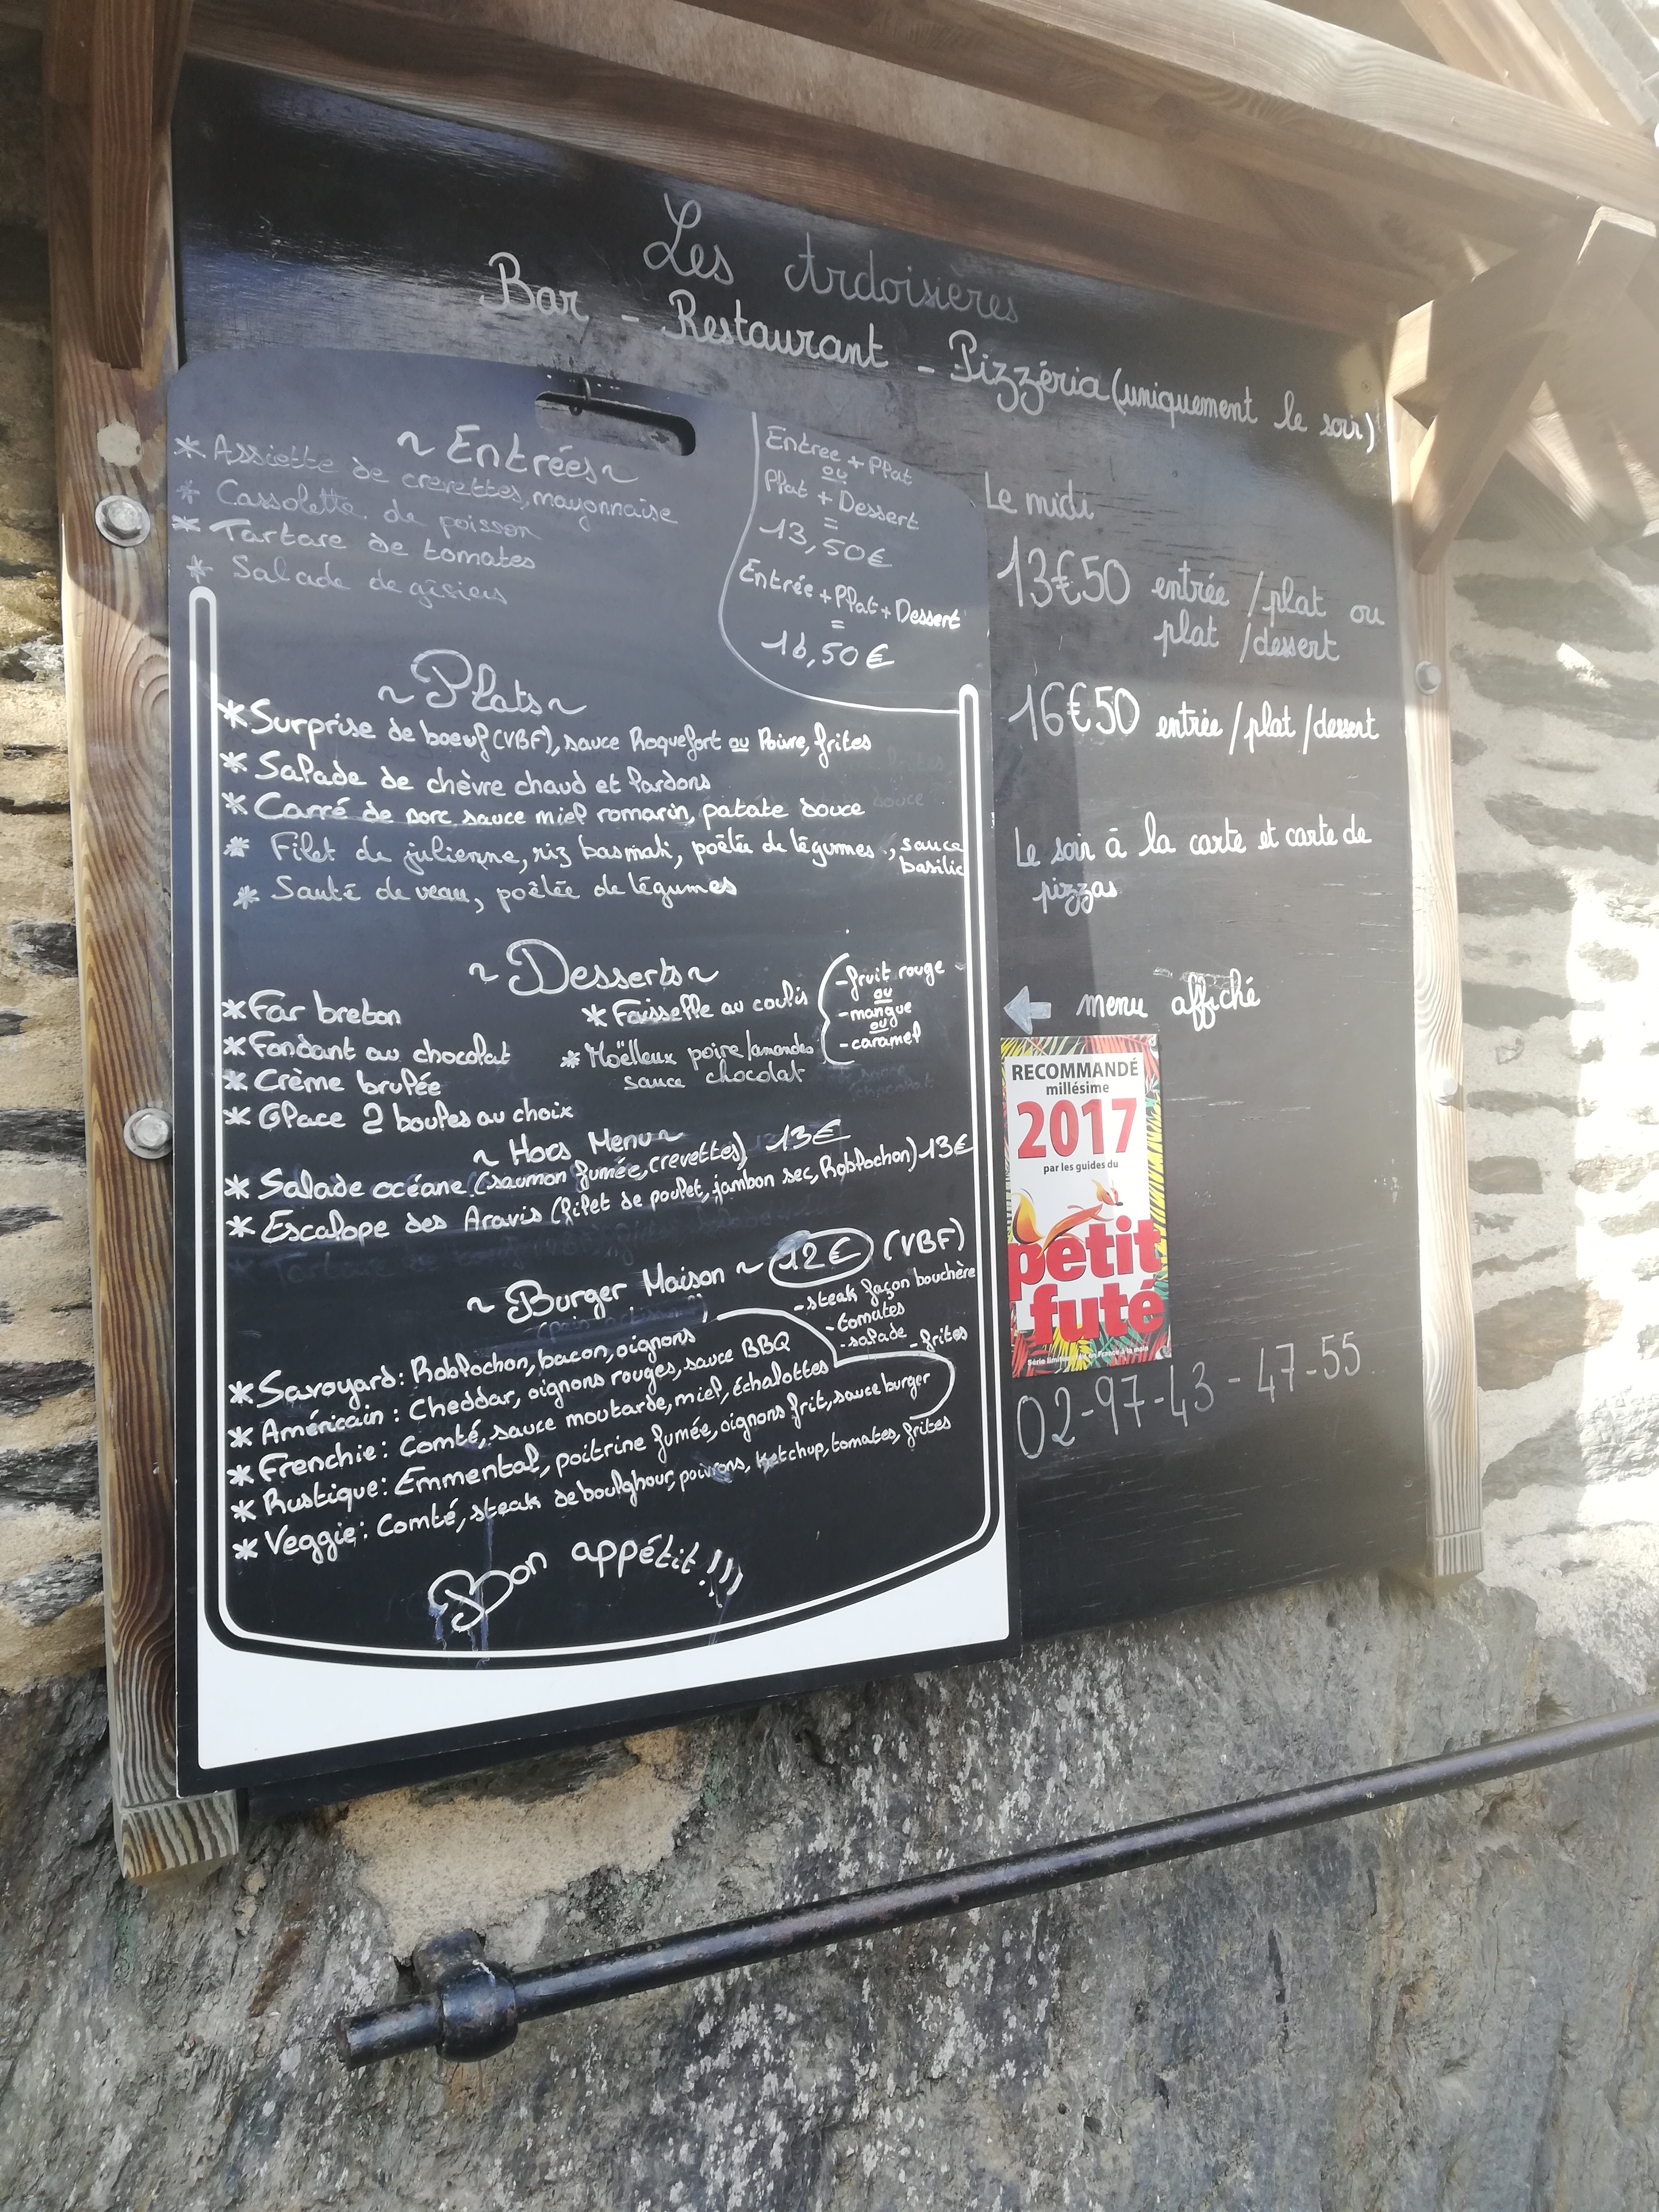 Les Ardoisières
Bar - Restaurant - Pizzéria (uniquement le soir)
~ Entrées ~
* Assiette de crevettes, mayonnaise
* Cassolette de poisson
* Tartare de tomates
* Salade de gésiers
Entrée + Plat
ou
Plat + Dessert
=
13,50€
Entrée + Plat + Dessert
=
16,50€
~ Plats ~
* Surprise de boeuf (VBF), sauce Roquefort ou Poivre, frites
* Salade de chèvre chaud et lardons
* Carré de porc sauce miel romarin, patate douce
* Filet de julienne, riz basmati, poêlée de légumes, sauce
basilic
* Sauté de veau, poêlée de légumes
~ Desserts ~
* Far breton
* Fondant au chocolat
* Crème brulée
* Glace 2 boules au choix
* Faisselle au coulis
- fruit rouge
ou
- mangue
ou
- caramel
* Moëlleux poire/amandes
sauce chocolat
~ Hors Menu ~
* Salade océane (saumon fumée, crevettes) 13€
* Escalope des Aravis (filet de poulet, jambon sec, Roblochon) 13€
~ Burger Maison ~ 12€ (VBF)
- steak façon bouchère
- tomates
- salade - frites
* Savoyard : Roblochon, bacon, oignons
* Américain : Cheddar, oignons rouges, sauce BBQ
* Frenchie : Comté, sauce moutarde, miel, échalottes
* Rustique : Emmental, poitrine fumée, oignons frit, sauce burger
* Veggie : Comté, steak de boulghour, poivrons, ketchup, tomates, frites
Bon appétit !!!
Le midi
13€50 entrée / plat ou
plat / dessert
16€50 entrée / plat / dessert
Le soir à la carte et carte de
pizzas
menu affiché
RECOMMANDÉ
millésime
2017
par les guides du
petit
futé
02-97-43-47-55